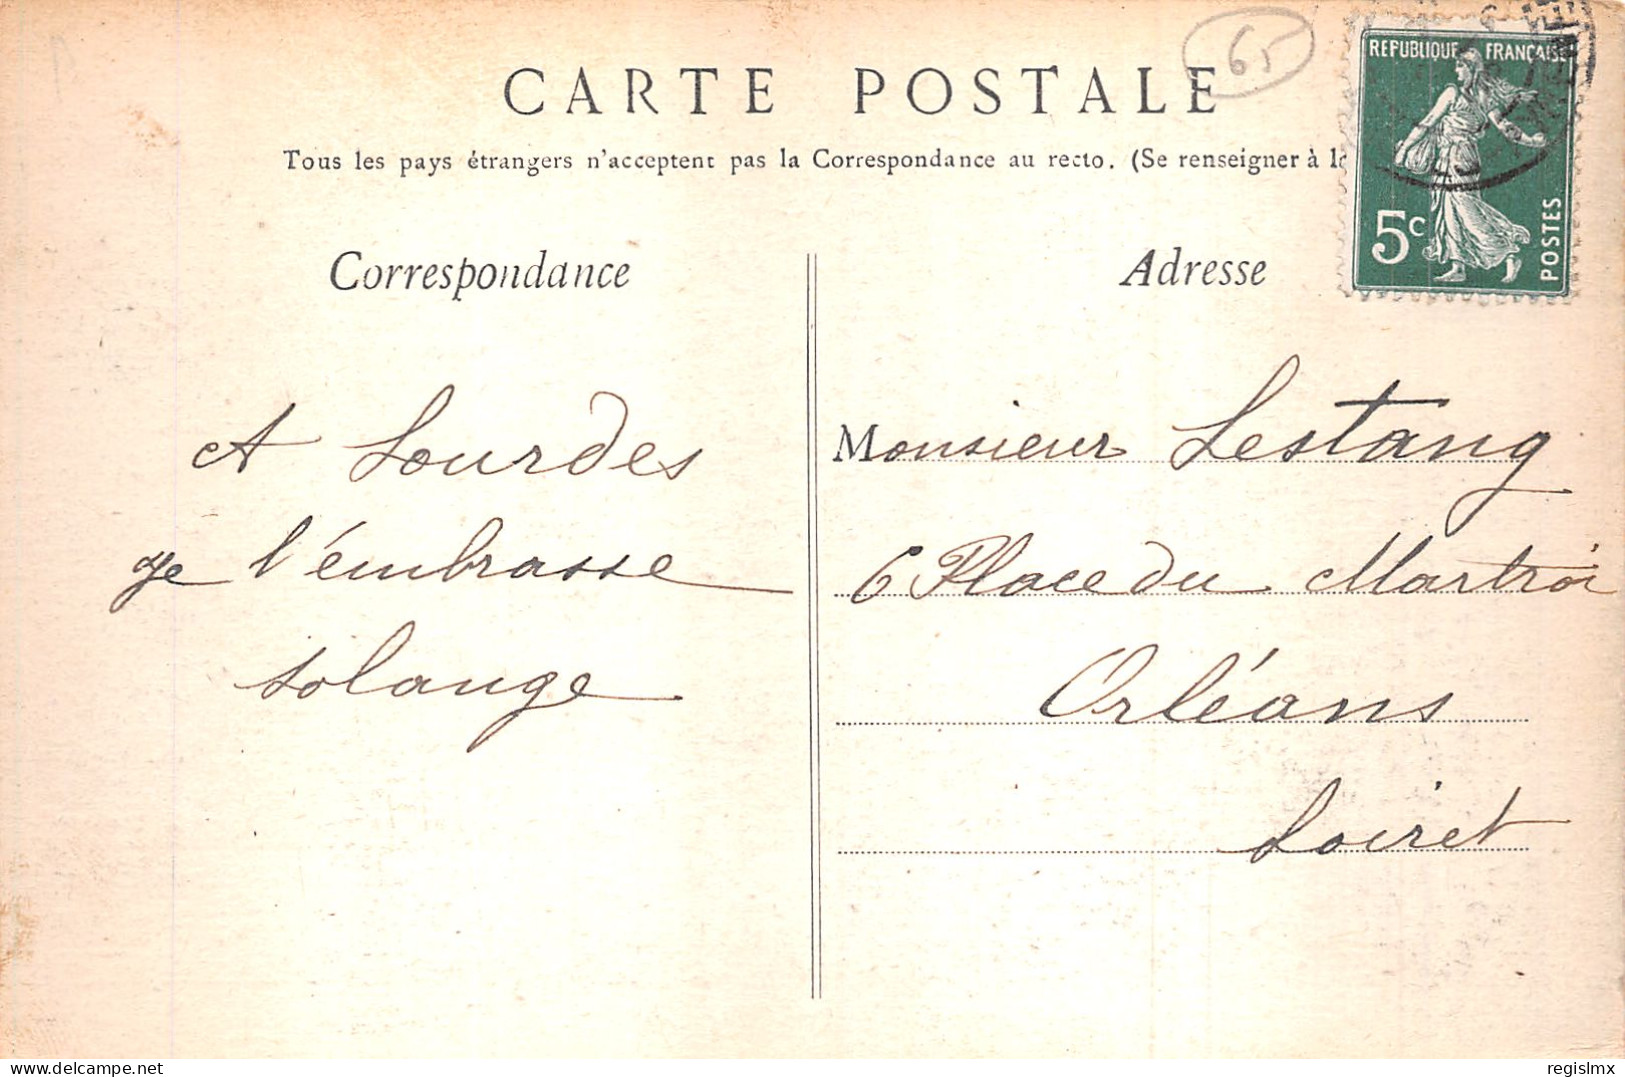 65
CARTE POSTALE
REPUBLIQUE FRANÇAISE
5c
POSTES
Tous les pays étrangers n'acceptent pas la Correspondance au recto. (Se renseigner à la
Correspondance
Adresse
A Lourdes
je t'embrasse
Solange
Monsieur Lestang
6 Place du Martroi
Orléans
Loiret
regislmx